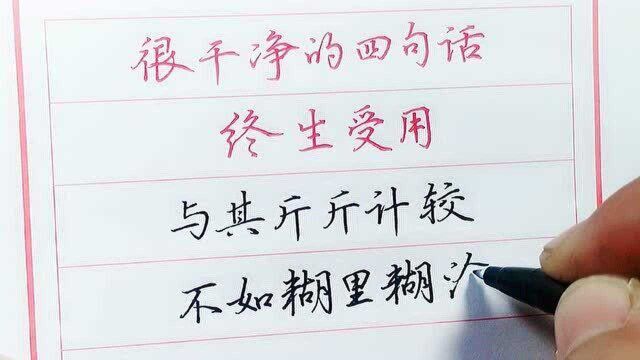 很干净的四句话
终生受用
与其斤斤计较
不如糊里糊